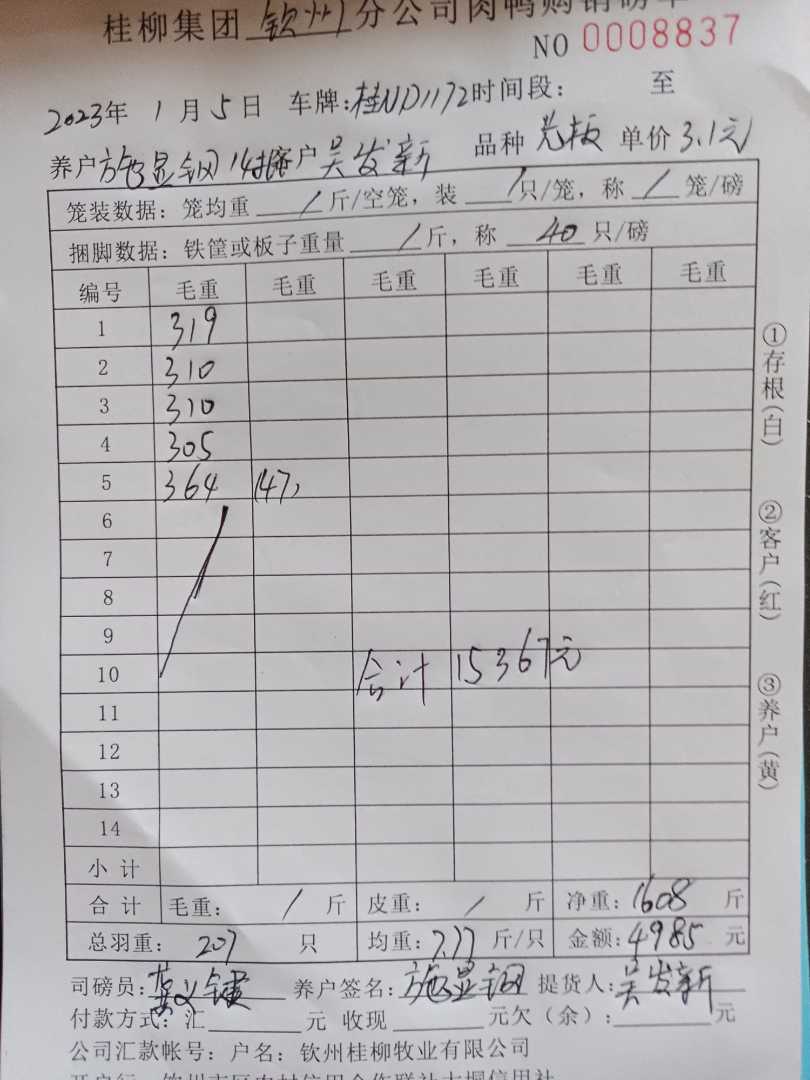 桂柳集团 钦州 分公司肉鸭购销磅单
NO 0008837
2023年 1月5日 车牌:桂ND1172 时间段: 至
养户 施显钢 14批 客户 吴发新 品种 单价 3.1元
笼装数据:笼均重 / 斤/空笼,装 / 只/笼,称 / 笼/磅
捆脚数据:铁筐或板子重量 / 斤,称 40 只/磅
编号 毛重 毛重 毛重 毛重 毛重 毛重
1 319
2 310
3 310
4 305
5 364 (47)
6
7
8
9
10 合计 15367元
11
12
13
14
小计
合计 毛重: / 斤 皮重: / 斤 净重:1608 斤
总羽重: 207 只 均重:7.77 斤/只 金额:4985 元
司磅员: 养户签名:施显钢 提货人:吴发新
付款方式:汇 元 收现 元欠(余): 元
公司汇款帐号:户名:钦州桂柳牧业有限公司
①存根(白)
②客户(红)
③养户(黄)